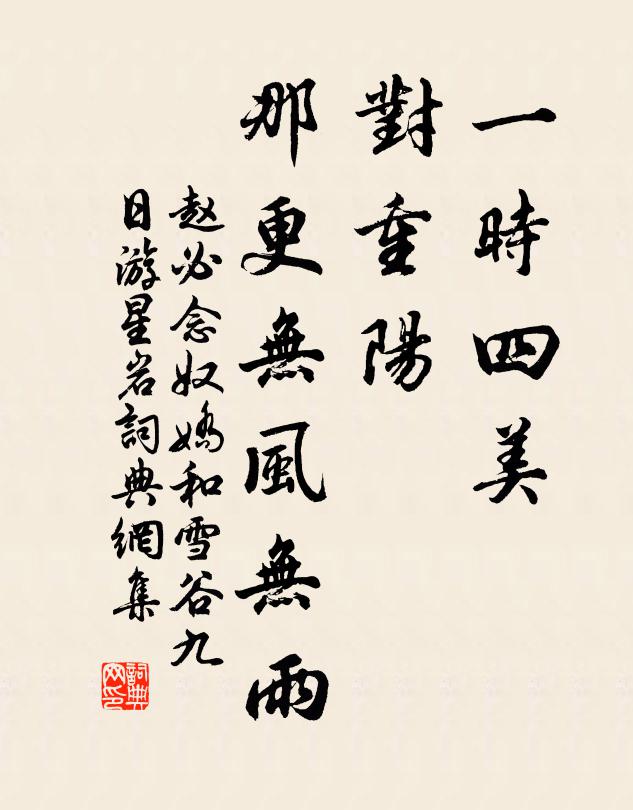 一時四美
對重陽
那更無風無雨
赵必念奴嬌和雪谷九
日游星岩詞典網集
詞典
网印